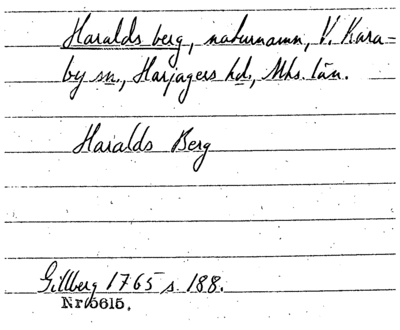 Haralds berg, naturnamn, V. Kara=
by sn., Harjagers hd., Mhs. län.
Haralds Berg
Gillberg 1765 s. 188.
Nr 5615.